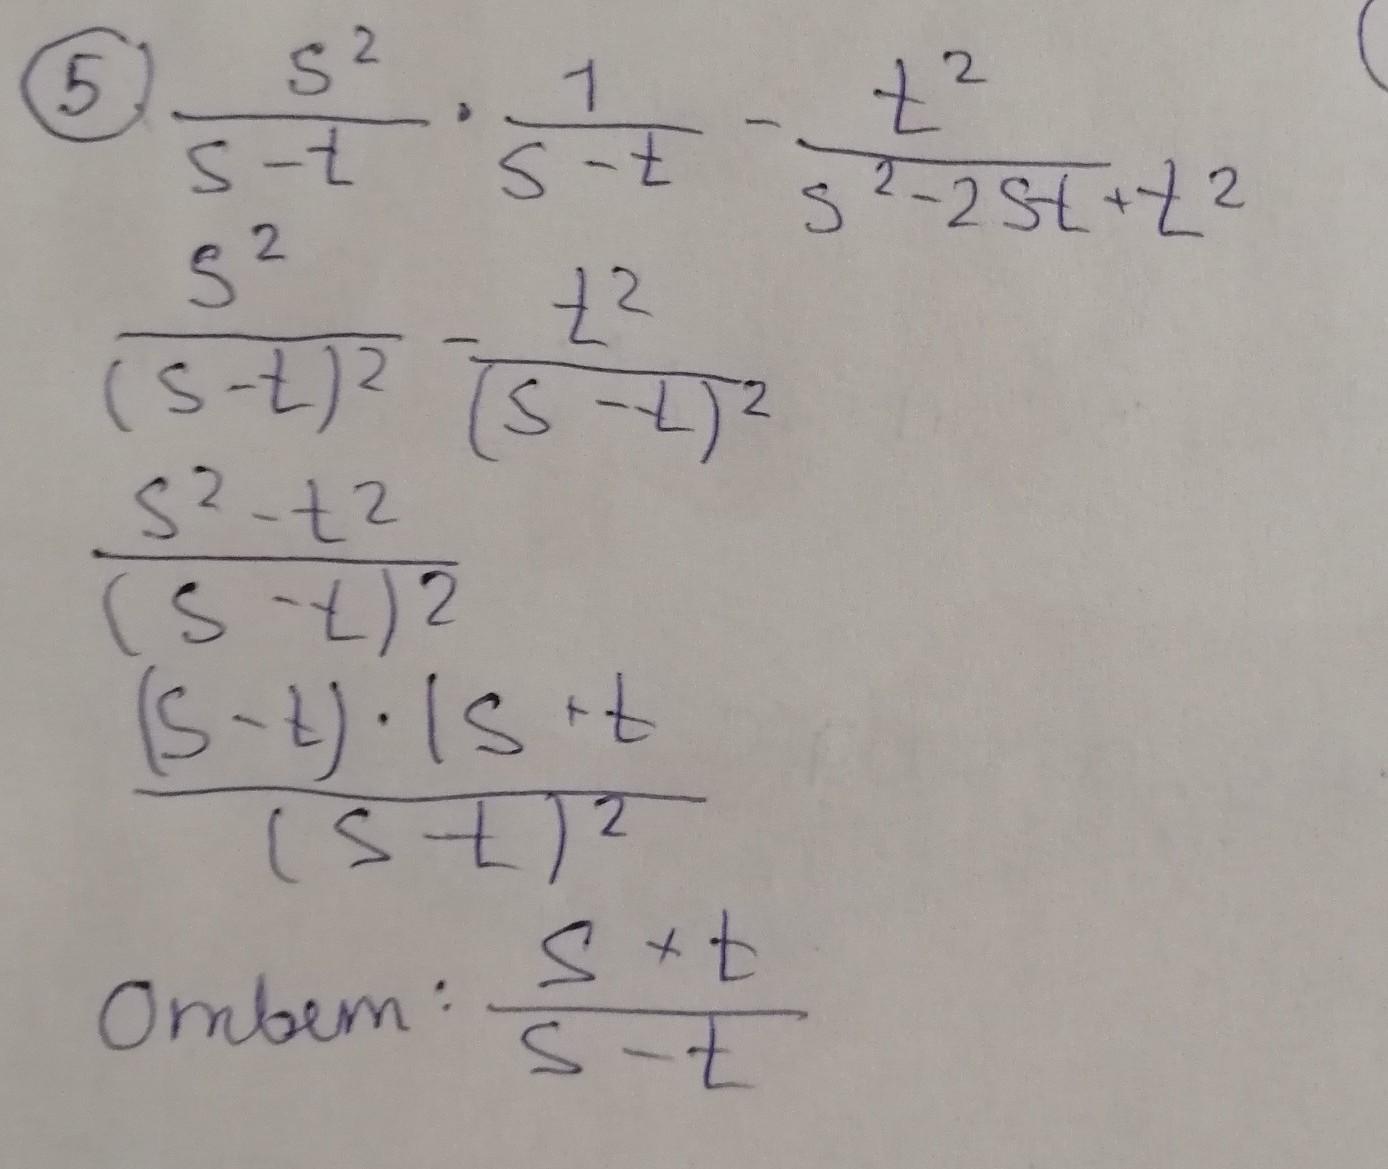 5 s²/(s-t) · 1/(s-t) - t²/(s²-2st+t²)
s²/(s-t)² - t²/(s-t)²
(s²-t²)/(s-t)²
(s-t)·(s+t/(s-t)²
Ombem: (s+t)/(s-t)